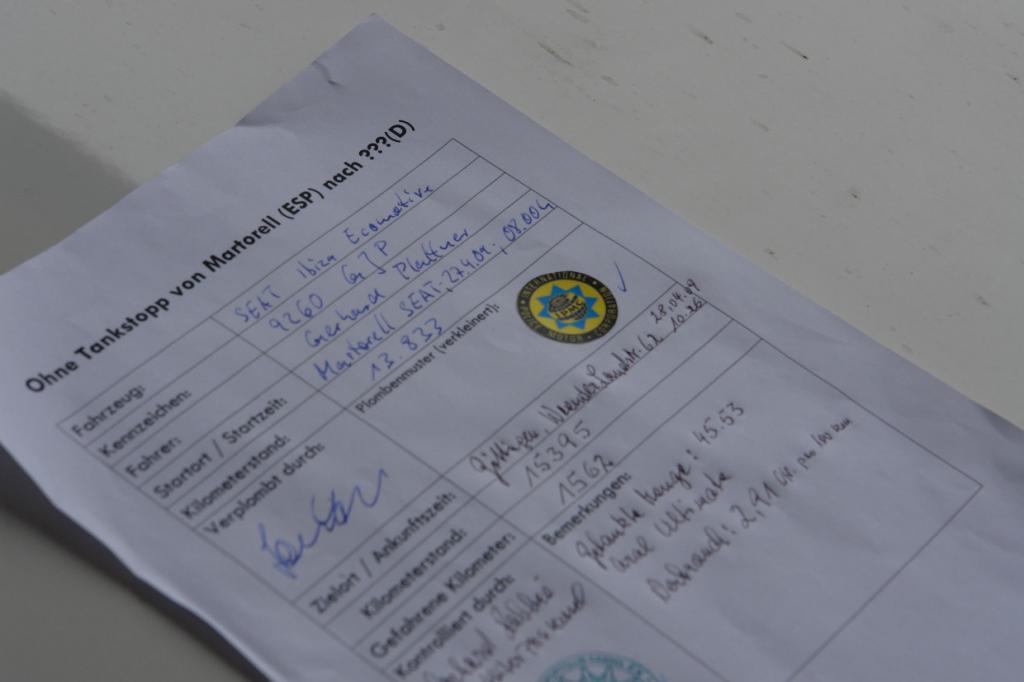 Ohne Tankstopp von Martorell (ESP) nach ???(D)
Fahrzeug: SEAT Ibiza Ecomotive
Kennzeichen: 9260 GJP
Fahrer: Gerhard Plattner
Startort / Startzeit: Martorell SEAT. 27.4.09, 08.00h
Kilometerstand: 13.833
Verplombt durch:
Plombenmuster (verkleinert):
INTERNATIONAL POLICE MOTOR
IPMC
28.04.09
Zielort / Ankunftszeit: Göttingen 62 10.36
Kilometerstand: 15395
Gefahrene Kilometer: 1562
Kontrolliert durch:
Bemerkungen:
getankte Menge: 45.53
Aral Ultimate
2,91 Ltr. per 100 km